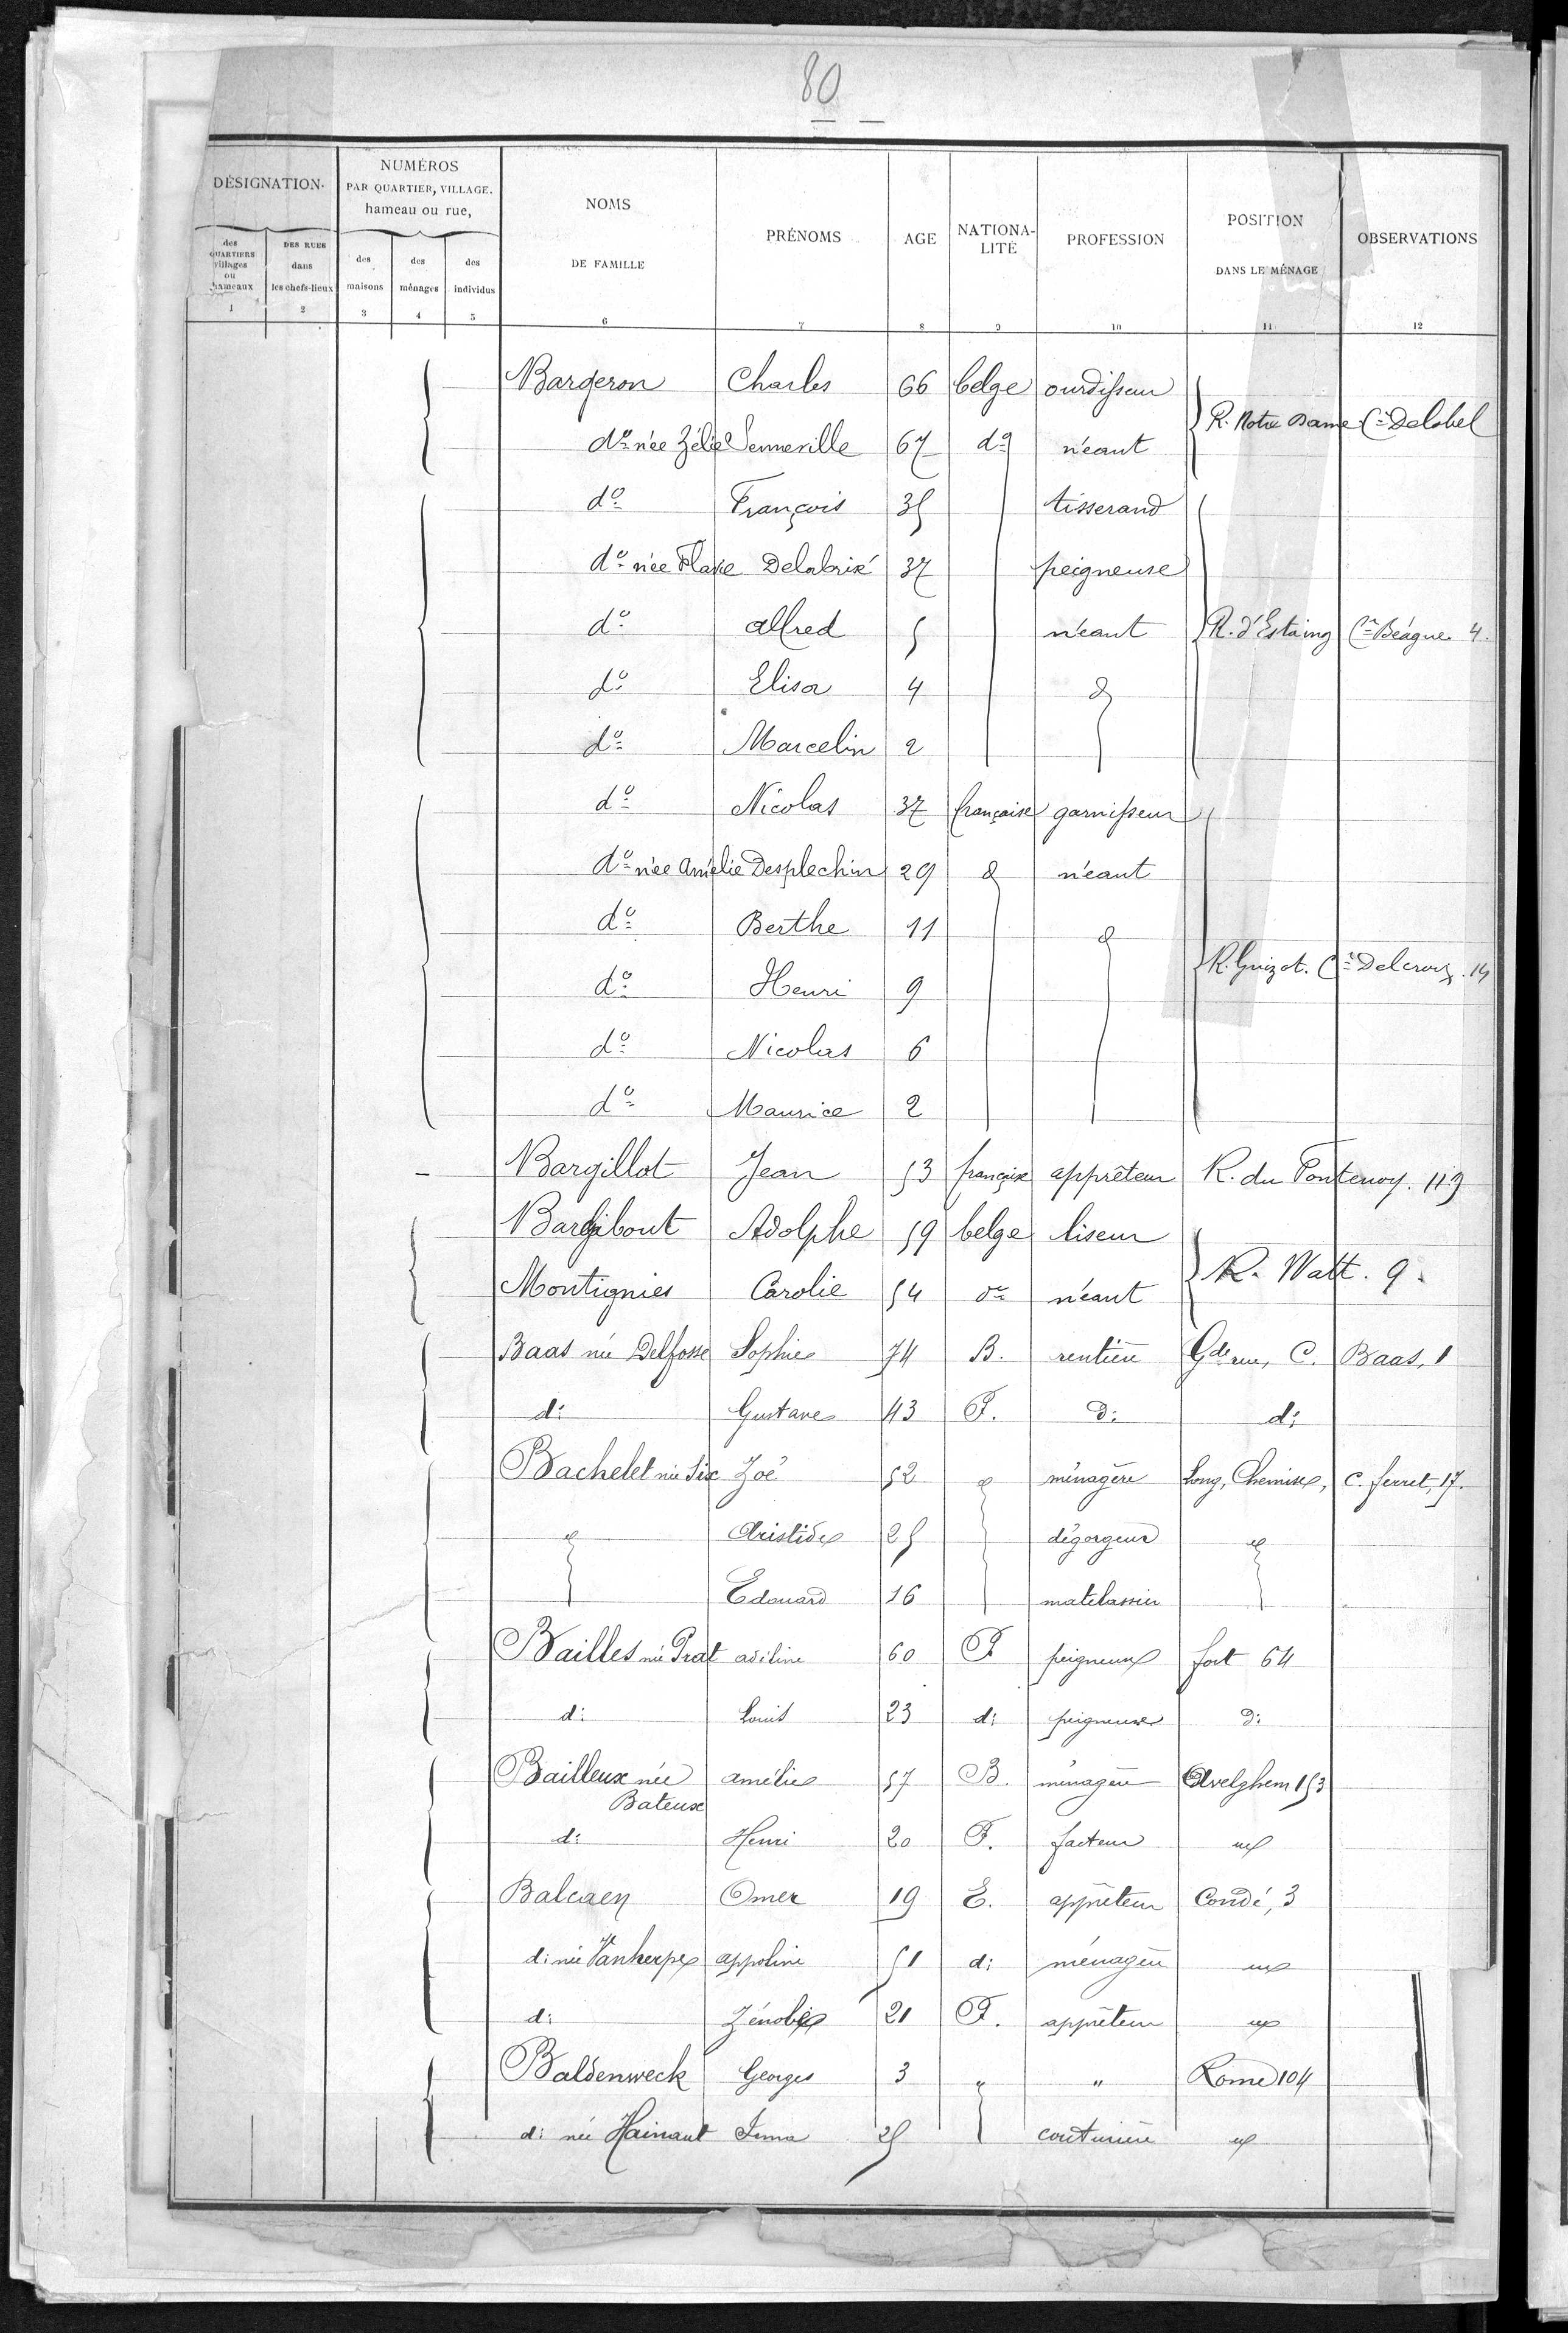 80
DÉSIGNATION
NUMÉROS
PAR QUARTIER, VILLAGE.
hameau ou rue,
NOMS
DE FAMILLE
PRÉNOMS
AGE
NATIONA-
LITÉ
PROFESSION
POSITION
DANS LE MÉNAGE
OBSERVATIONS
des
QUARTIERS
villages
ou
hameaux
DES RUES
dans
les chefs-lieux
des
maisons
des
ménages
des
individus
1 2 3 4 5 6 7 8 9 10 11 12
Bargeron Charles 66 belge ourdisseur
R. Notre Dame Cr Delobel
do née Zélie Senneville 67 do néant
do François 35 tisserand
do née Flavie Delabrixé 37 peigneuse
do Alfred 5 néant R. d'Estaing Cr Béague 4.
do Elisa 4 d
do Marcelin 2
do Nicolas 37 française garnisseur
do née Amélie Desplechin 29 d néant
do Berthe 11 d
R. Guizot. Cr Delcroix. 14
do Henri 9
do Nicolas 6
do Maurice 2
Bargillot Jean 53 française apprêteur R. du Fontenoy. 119
Bargibout Adolphe 59 belge liseur
R. Watt. 9.
Montignies Carolie 54 do néant
Baas née Delfosse Sophie 74 B. rentière Gde rue, C. Baas, 1
d: Gustave 43 F. d: d:
Bachelet née Six Zoé 52 ménagère Long. Chemise, C. ferret, 17.
Aristide 25 dégorgeur
Edouard 16 matelassier
Bailles née Prat adéline 60 F peigneuse fort 64
d: Louis 23 d: peigneur d:
Bailleux née amélie 57 B. ménagère Avelghem 153
Bateux
d: Henri 20 F. facteur
Balcaen Omer 19 E. apprêteur Condé, 3
d: née Vankerpe appoline 51 d: ménagère
d: Zénobie 21 F. apprêteur
Baldenweck Georges 3 " " Rome 104
d: née Hainaut Irma 25 couturière